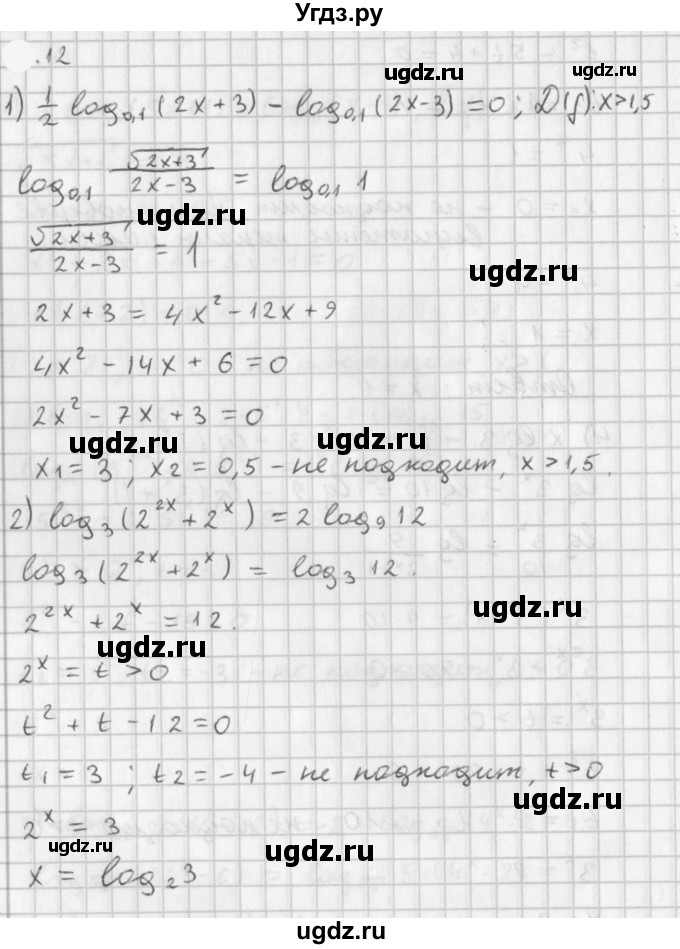 Угдз.ру
.12
ugdz.ru
1) 1/2 log₀,₁(2x+3) − log₀,₁(2x−3) = 0; D(f): x>1,5
ugdz.ru
log₀,₁ √(2x+3)/(2x−3) = log₀,₁ 1
ugdz.ru
√(2x+3)/(2x−3) = 1
ugdz.ru
2x+3 = 4x² − 12x + 9
4x² − 14x + 6 = 0
2x² − 7x + 3 = 0
ugdz.ru
ugdz.ru
x₁ = 3; x₂ = 0,5 – не подходит, x > 1,5.
2) log₃(2²ˣ + 2ˣ) = 2 log₉ 12
log₃(2²ˣ + 2ˣ) = log₃ 12.
ugdz.ru
2²ˣ + 2ˣ = 12.
ugdz.ru
2ˣ = t > 0
t² + t − 12 = 0
t₁ = 3; t₂ = −4 – не подходит, t > 0
ugdz.ru
2ˣ = 3
ugdz.ru
x = log₂ 3
ugdz.ru